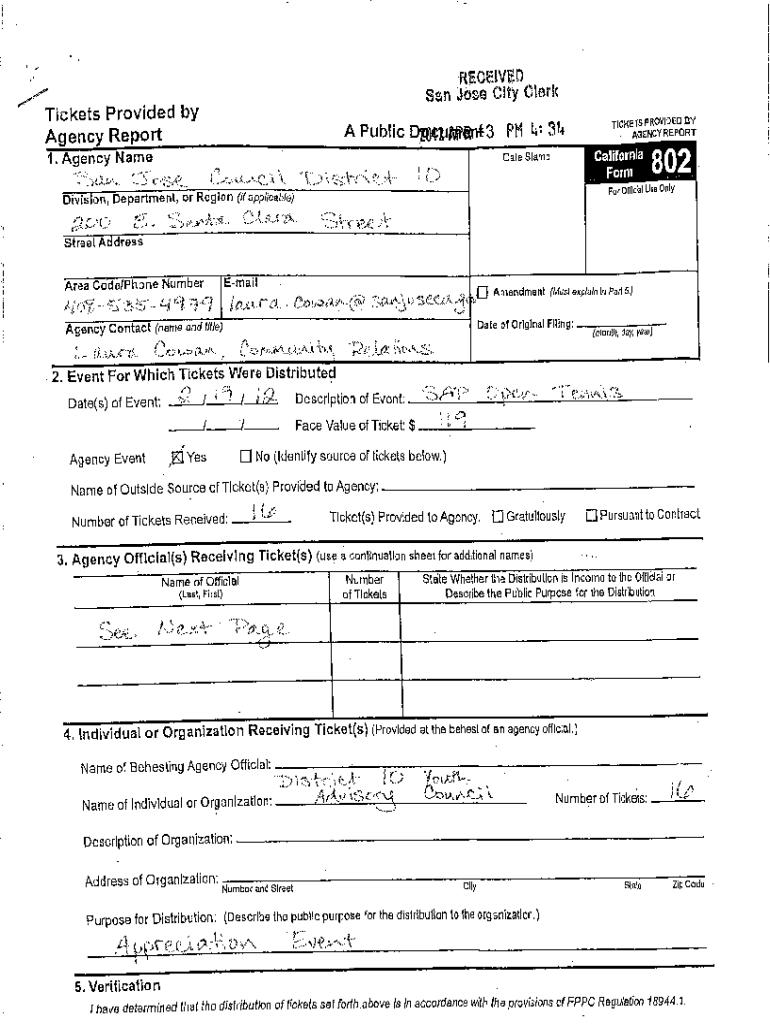 RECEIVED
San Jose City Clerk
Tickets Provided by
Agency Report
A Public Document
3 PM 4: 34
TICKETS PROVIDED BY
AGENCY REPORT
1. Agency Name
Date Stamp
California
Form 802
For Official Use Only
San Jose Council District 10
Division, Department, or Region (if applicable)
200 E. Santa Clara Street
Street Address
Area Code/Phone Number
E-mail
408-535-4979
laura.cowan@sanjoseca.go
Amendment (Must explain in Part 5.)
Agency Contact (name and title)
Date of Original Filing:
(month, day, year)
Laura Cowan, Community Relations
2. Event For Which Tickets Were Distributed
Date(s) of Event: 2 / 19 / 12 Description of Event: SAP Open Tennis
/ / Face Value of Ticket: $ 119
Agency Event Yes No (Identify source of tickets below.)
Name of Outside Source of Ticket(s) Provided to Agency:
Number of Tickets Received: 16 Ticket(s) Provided to Agency. Gratuitously Pursuant to Contract
3. Agency Official(s) Receiving Ticket(s) (use a continuation sheet for additional names)
Name of Official
(Last, First)
Number
of Tickets
State Whether the Distribution is Income to the Official or
Describe the Public Purpose for the Distribution
See Next Page
4. Individual or Organization Receiving Ticket(s) (Provided at the behest of an agency official.)
Name of Behesting Agency Official:
District 10 Youth
Name of Individual or Organization: Advisory Council Number of Tickets: 16
Description of Organization:
Address of Organization:
Number and Street City State Zip Code
Purpose for Distribution: (Describe the public purpose for the distribution to the organization.)
Appreciation Event
5. Verification
I have determined that the distribution of tickets set forth above is in accordance with the provisions of FPPC Regulation 18944.1.